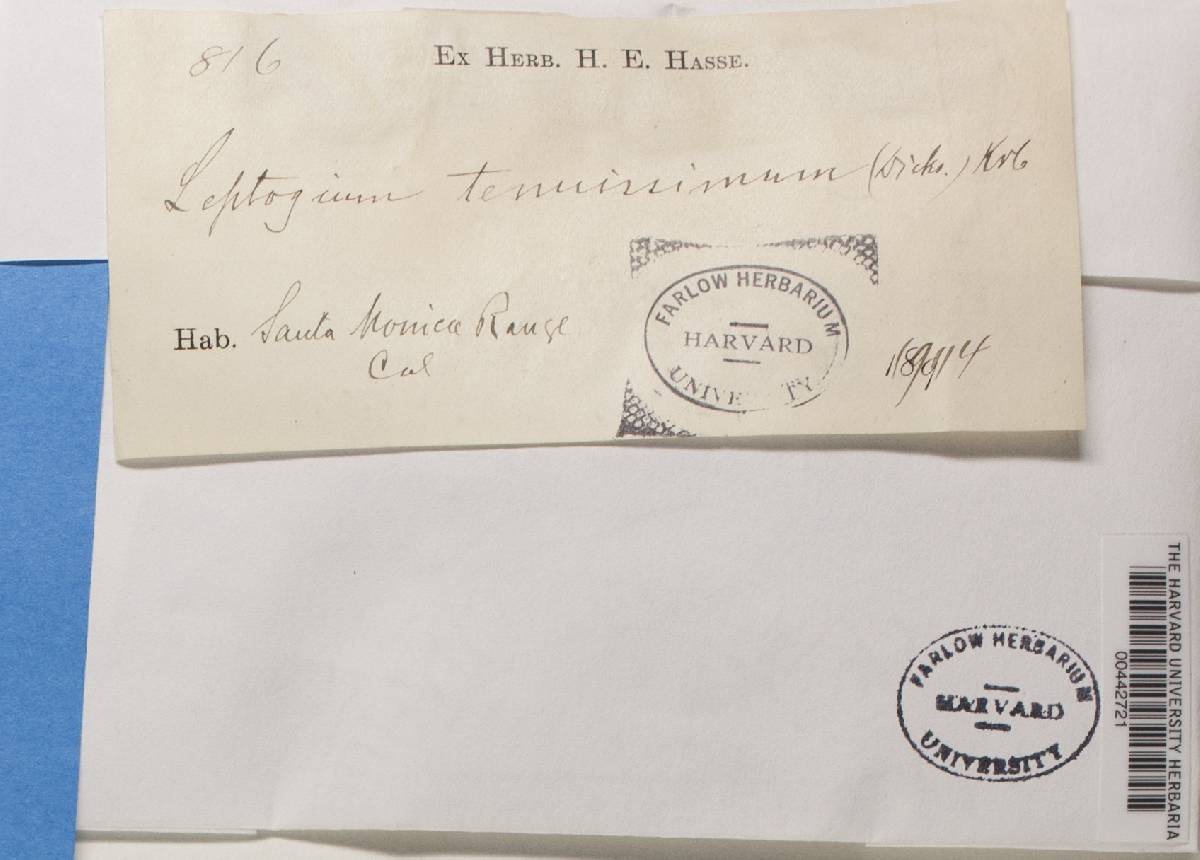 816
Ex Herb. H. E. Hasse.
Leptogium tenuissimum (Dicks.) Krb
Hab. Santa Monica Range
Cal
FARLOW HERBARIUM
HARVARD
UNIVERSITY
FARLOW HERBARIUM
HARVARD
UNIVERSITY
THE HARVARD UNIVERSITY HERBARIA
00442721